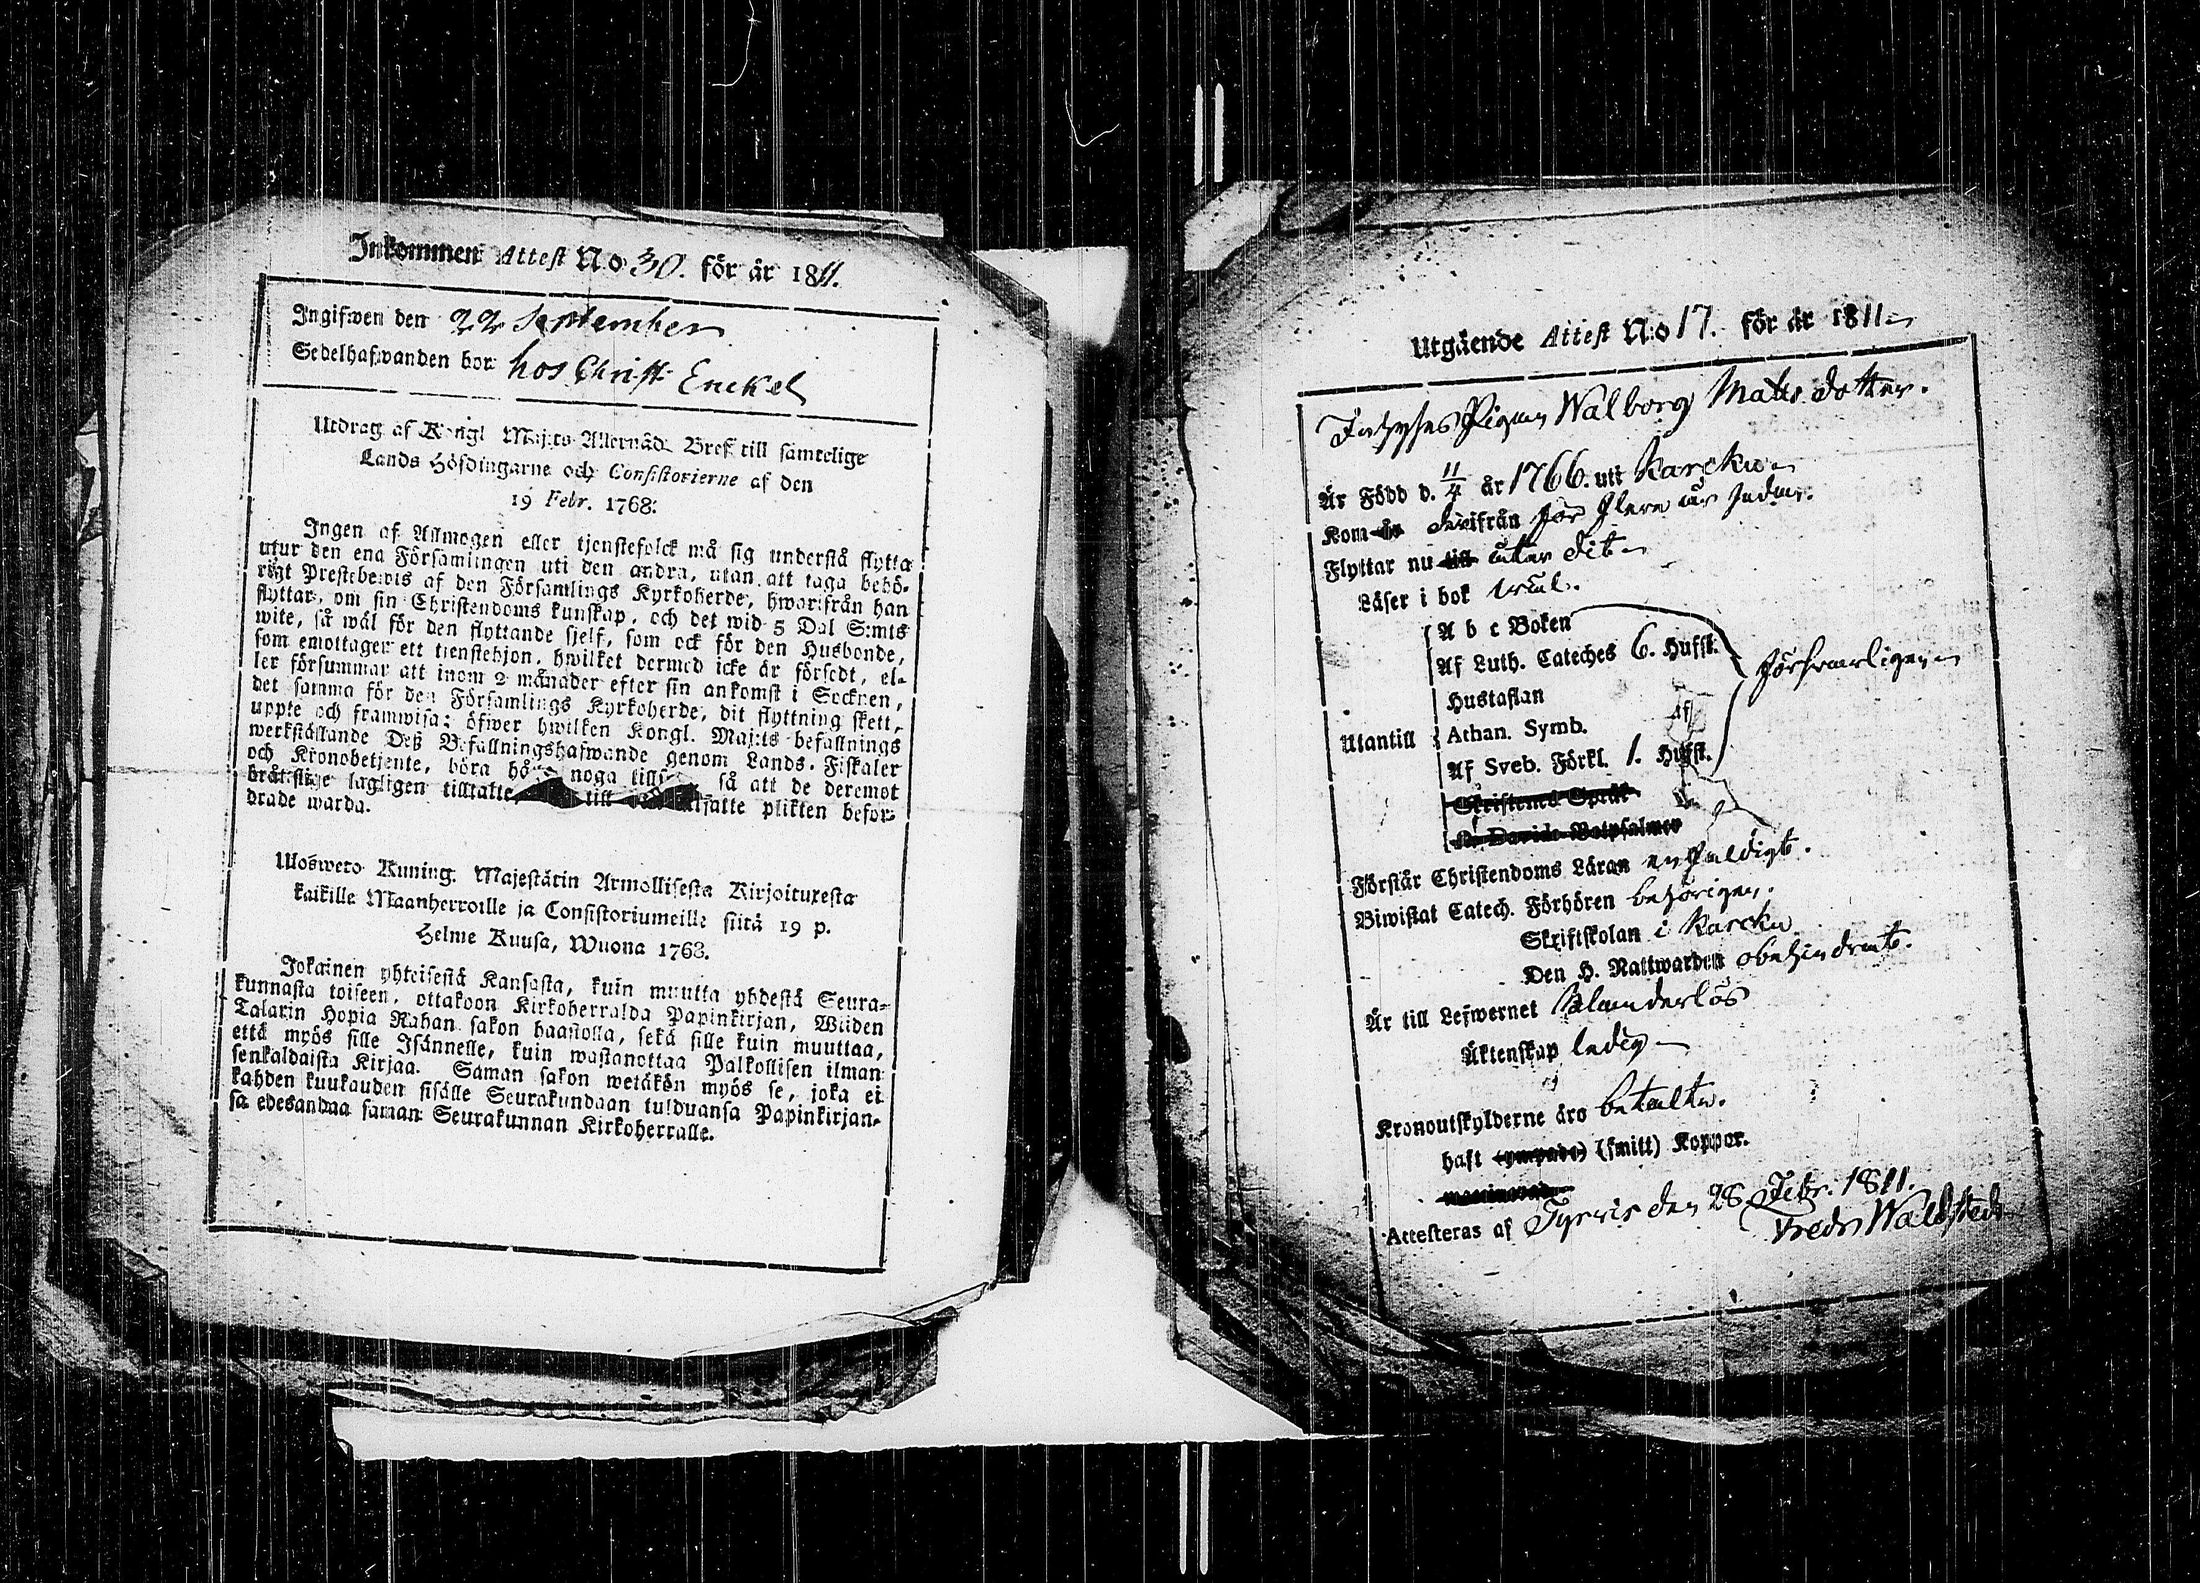 Inkommen Attest No 30. för år 1811.
Ingifwen den 22 September
Sedelhafwanden bor hos Christ. Enckel
Utdrag af Kongl Maj:ts Allernåd. Bref till samtelige
Lands Höfdingarne och Consistorierne af den
19 Febr. 1768:
Ingen af Allmogen eller tjenstefolck må sig understå flytta
utur den ena Församlingen uti den andra, utan att taga behö-
rigt Prestebewis af den Församlings Kyrkoherde, hwarifrån han
flyttar, om sin Christendoms kunskap, och det wid 5 Dal S:mts
wite, så wäl för den flyttande sjelf, som ock för den Husbonde,
som emottager ett tienstehjon, hwilket dermed icke är försedt, el-
ler försummar att inom 2 månader efter sin ankomst i Socknen,
det samma för den Församlings Kyrkoherde, dit flyttning skett,
uppte och framwisa; öfwer hwilken Kongl. Maj:ts befallnings
werkställande Deß Befallningshafwande genom Lands-Fiskaler
och Kronobetjente, böra noga så att de deremot
brätslige lagligen tilltalte till satte plikten befor-
drade warda.
Uloswero Kuning. Majestätin Armollisesta Kirjoituxesta
kaikille Maanherroille ja Consistoriumeille siitä 19 p.
Helme Kuusa, Wuona 1768.
Jokainen yhteisestä Kansasta, kuin muutta yhdestä Seura-
kunnasta toiseen, ottakoon Kirkoherralda Papinkirjan, Wiiden
Talarin Hopia Rahan sakon haastolla, sekä sille kuin muuttaa,
että myös sille Isännelle, kuin wastanottaa Palkollisen ilman
senkaldaista Kirjaa. Saman sakon wetäkön myös se, joka ei
kahden kuukauden sisälle Seurakundaan tulduansa Papinkirjan-
sa edesandaa saman Seurakunnan Kirkoherralle.
Utgående Attest No 17. för år 1811
Pigan Walborg Matts dotter.
Är Född d. 11/4 år 1766. uti Karcku
Kom år därifrån för flere år sedan.
Flyttar nu till åter dit
Läser i bok wäl.
A b c Boken
Af Luth. Cateches 6. Hufst.
Hustaflan
försvarligen
Utantill Athan. Symb.
Af Sveb. Förkl. 1. Hufst.
Skriftenes Språk
Davids Botpsalmer
Förstår Christendoms Läran enfaldigt.
Biwistat Catech. Förhören behörigen.
Skriftskolan i Karcku
Den H. Nattwarden obehindrat.
Är till Lefwernet klanderlös
Äktenskap ledig
Kronoutskylderne äro betalta.
haft (ympade) (smitt) Koppor.
Attesteras af Tyrvis den 28 Febr. 1811.
Fredr Waldstedt